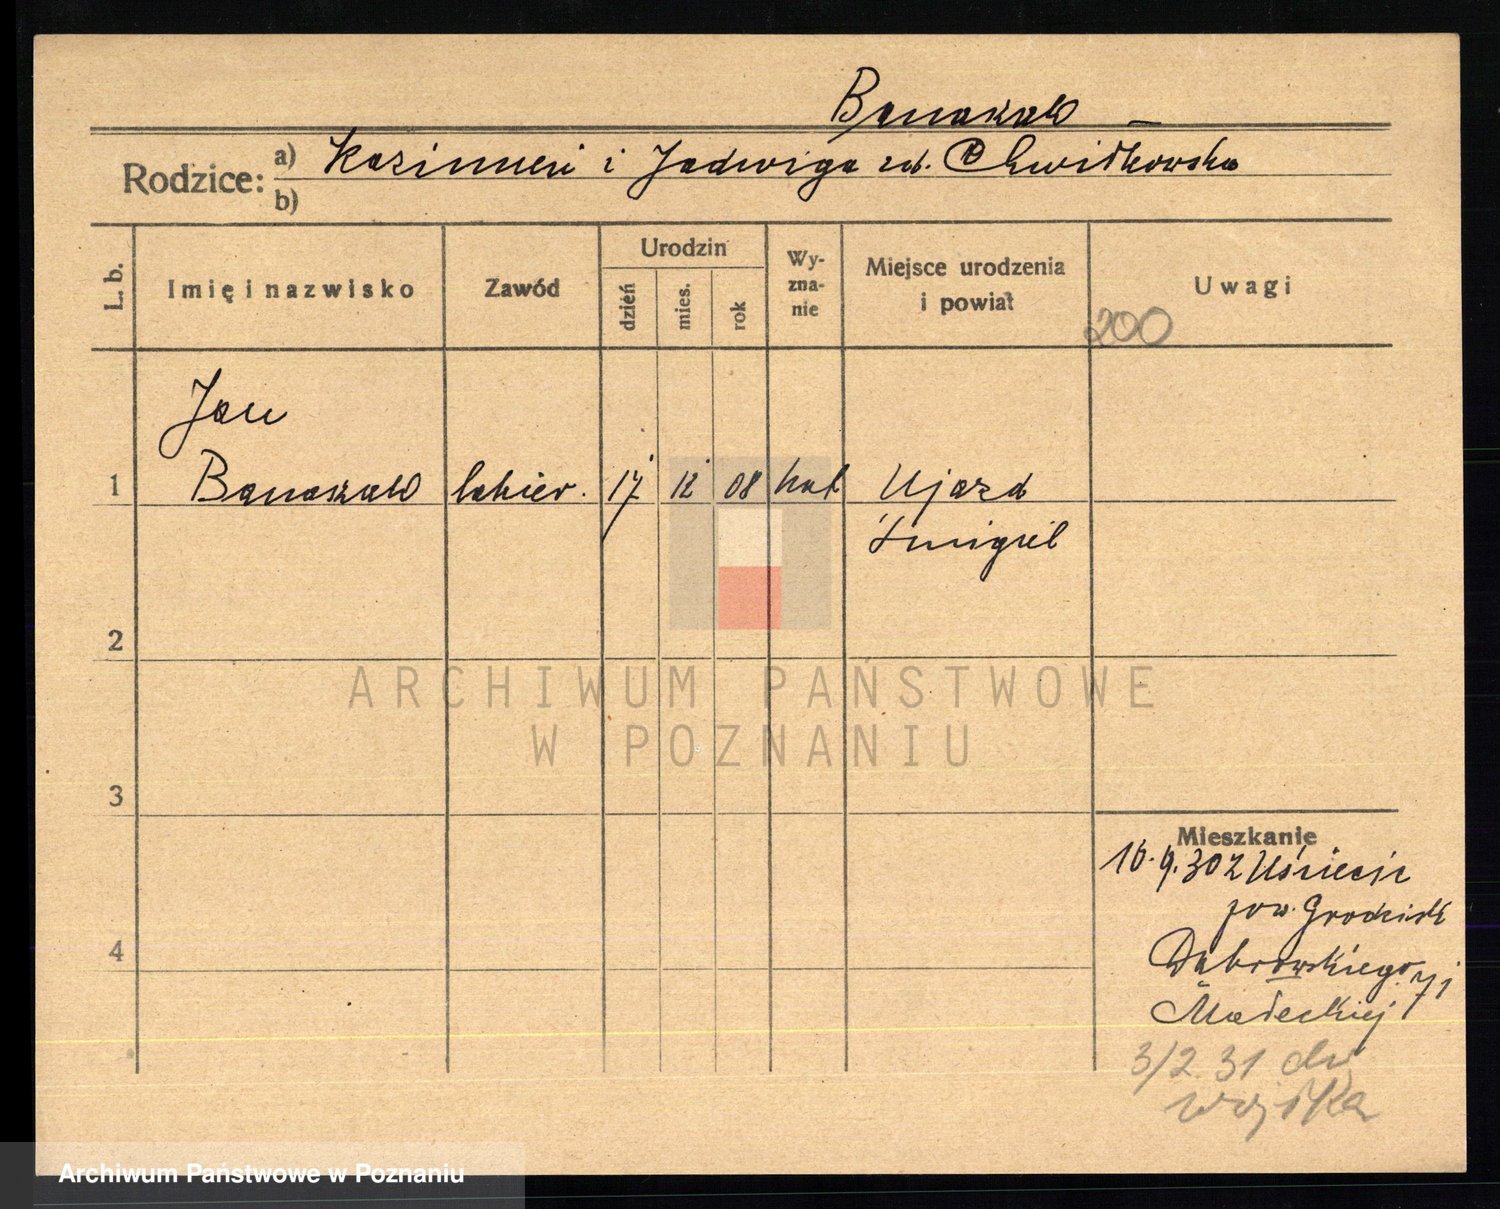 Banaszak
Rodzice: a) Kazimierz i Jadwiga zd. Chwiłkowska
b)
L. b. Imię i nazwisko Zawód Urodzin dzień mies. rok Wy-zna-nie Miejsce urodzenia i powiat Uwagi
200
Jan
1 Banaszak lakier. 17 12 08 kat Ujazd
Śmigiel
2
ARCHIWUM PAŃSTWOWE
W POZNANIU
3
Mieszkanie
16.9.30 z Uścięcic
pow. Grodzisk
4
Dąbrowskiego 71
Małeckiej
3/2 31 do
wojska
Archiwum Państwowe w Poznaniu